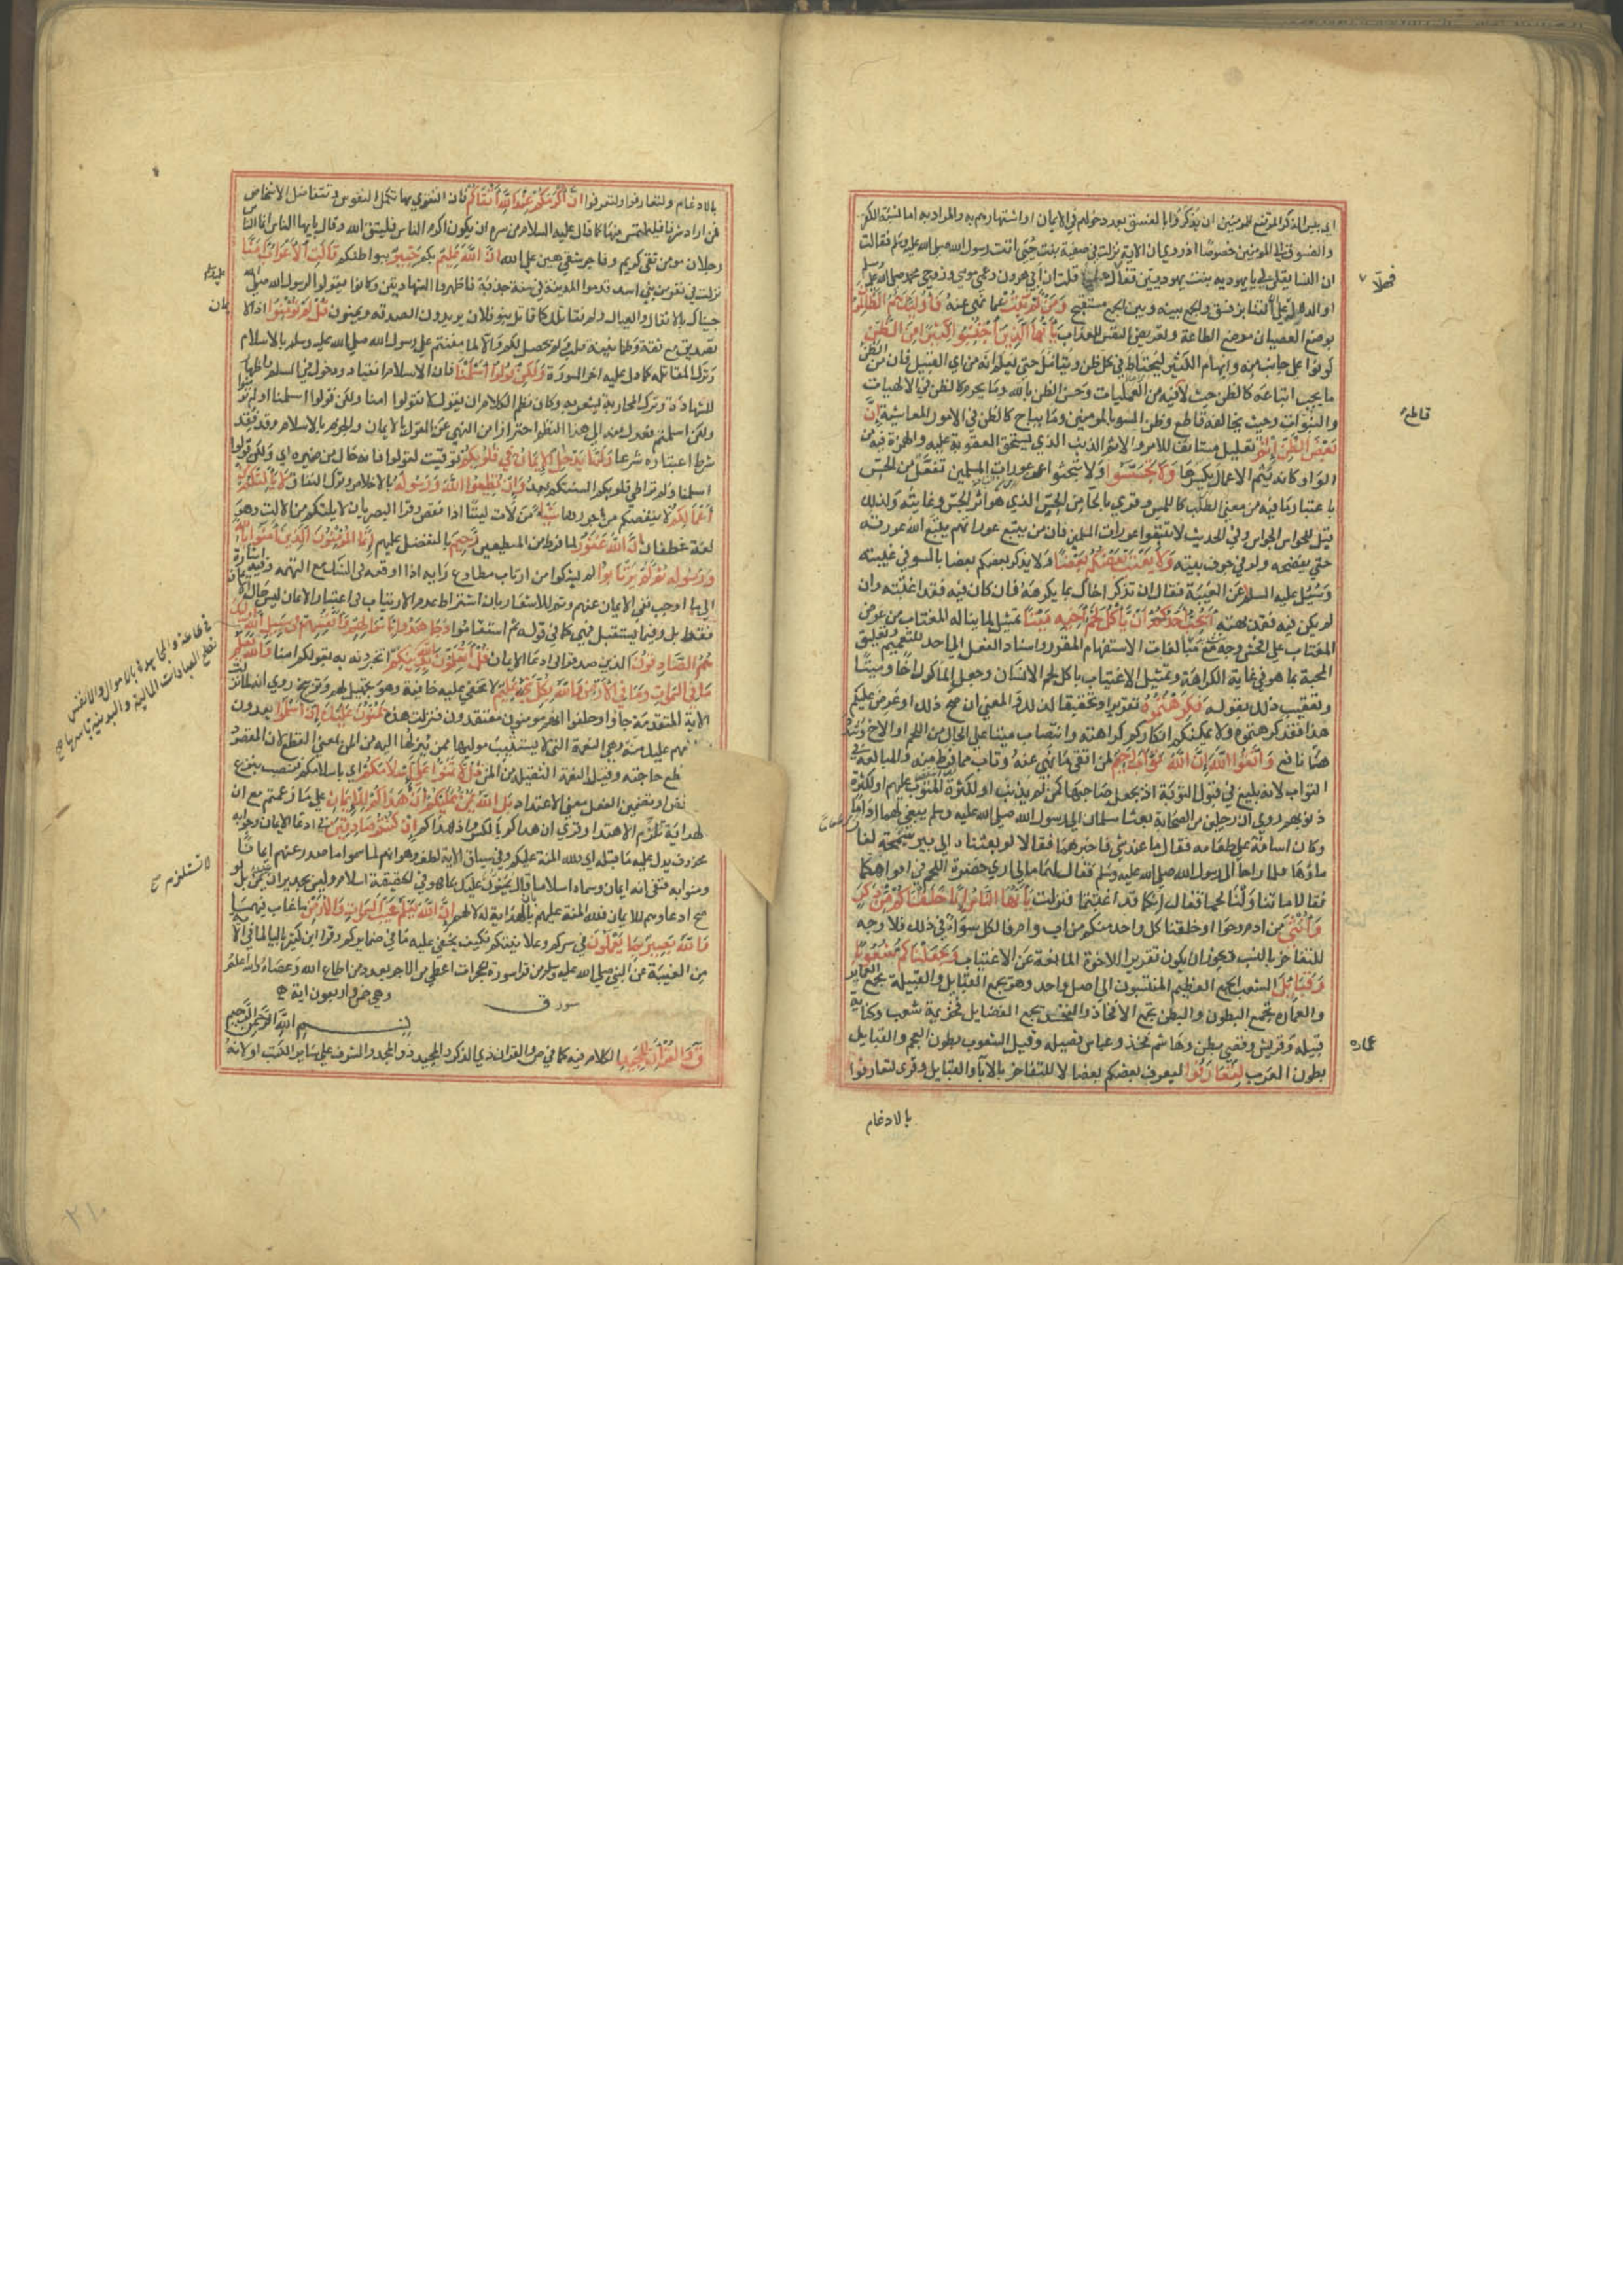 اي بئس الذكر المرتفع للمومنين ان يذكروا بالفسق بعد دخولهم في الايمان او اشتهارهم به والمراد به اما نسبة الكفر
والفسوق الي المومنين خصوصا اذ روي ان الاية نزلت في صفية بنت حيي اتت رسول الله صلى الله عليه وسلم فقالت
ان النسا يقلن لي يا يهودية بنت يهوديين فقال هلا قلت ان ابي هرون وعمي موسى وزوجي محمد صلى الله عليه وسلم
او الدلالة علي ان التنابز فسق والجمع بينه وبين الايمان مستقبح وَمَنْ لَمْ يَتُبْ عما نهي عنه فَأُولَئِكَ هُمُ الظَّالِمُونَ
بوضع العصيان موضع الطاعة وتعريض النفس للعذاب يَا أَيُّهَا الَّذِينَ آمَنُوا اجْتَنِبُوا كَثِيرًا مِنَ الظَّنِّ
كونوا علي جانب منه وابهام الكثير ليحتاط في كل ظن ويتامل حتى يعلم انه من اي القبيل فان من الظن
ما يجب اتباعه كالظن حيث لا قاطع فيه من العمليات وحسن الظن بالله وما يحرم كالظن في الالهيات
والنبوات وحيث يخالفه قاطع وظن السوء بالمومنين وما يباح كالظن في الامور المعاشية إِنَّ
بَعْضَ الظَّنِّ إِثْمٌ تعليل مستانف للامر والاثم الذنب الذي يستحق العقوبة عليه والهمزة فيه من
الواو كانه يثم الاعمال اي يكسرها وَلَا تَجَسَّسُوا ولا تبحثوا عن عورات المسلمين تفعل من الجس
باعتبار ما فيه من معنى الطلب كالتلمس وقري بالحا من الحس الذي هو اثر الجس وغايته ولذلك
قيل للحواس الجواس وفي الحديث لا تتبعوا عورات المسلمين فان من يتبع عوراتهم يتتبع الله عورته
حتى يفضحه ولو في جوف بيته وَلَا يَغْتَبْ بَعْضُكُمْ بَعْضًا ولا يذكر بعضكم بعضا بالسو في غيبته
وسيل عليه السلام عن الغيبة فقال ان تذكر اخاك بما يكرهه فان كان فيه فقد اغتبته وان
لم يكن فيه فقد بهته أَيُحِبُّ أَحَدُكُمْ أَنْ يَأْكُلَ لَحْمَ أَخِيهِ مَيْتًا تمثيل لما يناله المغتاب من عرض
المغتاب علي افحش وجه مع مبالغات الاستفهام المقرر واسناد الفعل الي احد للتعميم وتعليق
المحبة بما هو في غاية الكراهة وتمثيل الاغتياب باكل لحم الانسان وجعل الماكول اخا وميتا
وتعقيب ذلك بقوله فَكَرِهْتُمُوهُ تقريرا وتحقيقا لذلك والمعنى ان صح ذلك او عرض عليكم
هذا فقد كرهتموه ولا يمكنكم انكار كراهته وانتصاب ميتا علي الحال من اللحم او الاخ وشدده
هنا نافع وَاتَّقُوا اللَّهَ إِنَّ اللَّهَ تَوَّابٌ رَحِيمٌ لمن اتقى ما نهي عنه وتاب مما فرط منه والمبالغة في
التواب لانه بليغ في قبول التوبة اذ يجعل صاحبها كمن لم يذنب او لكثرة المتوب عليهم او لكثرة
ذنوبهم روي ان رجلين من الصحابة بعثا سلمان الي رسول الله صلى الله عليه وسلم يبغي لهما اداما
وكان اسامة علي طعامه فقال ما عندي شي فاخبرهما فقالا لو بعثناه الي بير سميحة لغار
ماؤها فلما راحا الي رسول الله صلى الله عليه وسلم فقال لهما مالي اري حضرة اللحم في افواهكما
فقالا ما تناولنا لحما فقال انكما قد اغتبتما فنزلت يَا أَيُّهَا النَّاسُ إِنَّا خَلَقْنَاكُمْ مِنْ ذَكَرٍ
وَأُنْثَى من ادم وحوا او خلقنا كل واحد منكم من اب وام فالكل سواء في ذلك فلا وجه
للتفاخر بالنسب ويجوز ان يكون تقريرا للاخوة المانعة عن الاغتياب وَجَعَلْنَاكُمْ شُعُوبًا
وَقَبَائِلَ الشعب الجمع العظيم المنتسبون الي اصل واحد وهو يجمع القبايل والقبيلة تجمع العماير
والعمارة تجمع البطون والبطن تجمع الافخاذ والفخذ يجمع الفصايل فخزيمة شعب وكنانة
قبيلة وقريش وقصي بطن وهاشم فخذ وعباس فصيلة وقيل الشعوب بطون العجم والقبايل
بطون العرب لِتَعَارَفُوا ليعرف بعضكم بعضا لا للتفاخر بالابا والقبايل وقرى لتعارفوا
بالادغام
فهلا ٧
قاطع
عماره
بالادغام ولتتعارفوا ولتعرفوا إِنَّ أَكْرَمَكُمْ عِنْدَ اللَّهِ أَتْقَاكُمْ فان التقوي بها تكمل النفوس وتتفاضل الاشخاص
فمن اراد شرفا فليلتمس منها كما قال عليه السلام من سره ان يكون اكرم الناس فليتق الله وقال يا ايها الناس انما الناس
رجلان مومن تقي كريم وفاجر شقي هين علي الله إِنَّ اللَّهَ عَلِيمٌ بكم خَبِيرٌ ببواطنكم قَالَتِ الْأَعْرَابُ آمَنَّا
نزلت في نفر من بني اسد قدموا المدينة في سنة جدبة فاظهروا الشهادتين وكانوا يقولوا لرسول الله صلى الله
جيناك بالاثقال والعيال ولم نقاتلك كما قاتل بنو فلان يريدون الصدقة ويمنون قُلْ لَمْ تُؤْمِنُوا اذ الا
تصديق مع ثقة وطمانينة قلب ولم تحصل لكم والا لما مننتم علي رسول الله صلى الله عليه وسلم بالاسلام
وترك المقاتلة كما دل عليه اخر السورة وَلَكِنْ قُولُوا أَسْلَمْنَا فان الاسلام انقياد ودخول في السلم واظهار
للشهادة وترك المحاربة ليشعر به وكان نظم الكلام ان يقول لا تقولوا امنا ولكن قولوا اسلمنا او لم تؤمنوا
ولكن اسلمتم فعدل منه الي هذا النظم احترازا من النهي عن القول بالايمان والجزم بالاسلام وقد فقد
شرط اعتباره شرعا وَلَمَّا يَدْخُلِ الْإِيمَانُ فِي قُلُوبِكُمْ توقيت لقولوا فانه حال من ضميره اي ولكن قولوا
اسلمنا ولم تواطي قلوبكم السنتكم بعد وَإِنْ تُطِيعُوا اللَّهَ وَرَسُولَهُ بالاخلاص وترك النفاق لَا يَلِتْكُمْ مِنْ
أَعْمَالِكُمْ لا ينقصكم من اجورها شَيْئًا من لات ليتا اذا نقص وقرا البصريان لا يلتكم من الالت وهو
لغة غطفان إِنَّ اللَّهَ غَفُورٌ لما فرط من المطيعين رَحِيمٌ بالتفضل عليهم إِنَّمَا الْمُؤْمِنُونَ الَّذِينَ آمَنُوا بِاللَّهِ
وَرَسُولِهِ ثُمَّ لَمْ يَرْتَابُوا لم يشكوا من ارتاب مطاوع رابه اذا اوقعه في الشك مع التهمة وفيه اشارة
الي ما اوجب نفي الايمان عنهم وثم للاشعار بان اشتراط عدم الارتياب في اعتبار الايمان ليس حال الايمان
فقط بل وفيما يستقبل فهي كما في قوله ثم استقاموا وَجَاهَدُوا بِأَمْوَالِهِمْ وَأَنْفُسِهِمْ فِي سَبِيلِ اللَّهِ أُولَئِكَ
هُمُ الصَّادِقُونَ الذين صدقوا في ادعا الايمان قُلْ أَتُعَلِّمُونَ اللَّهَ بِدِينِكُمْ اتخبرونه به بقولكم امنا وَاللَّهُ يَعْلَمُ
مَا فِي السَّمَوَاتِ وَمَا فِي الْأَرْضِ وَاللَّهُ بِكُلِّ شَيْءٍ عَلِيمٌ لا تخفى عليه خافية وهو تجهيل لهم وتوبيخ روي انه لما نزلت
الاية المتقدمة جاوا وحلفوا انهم مومنون معتقدون فنزلت هذه يَمُنُّونَ عَلَيْكَ أَنْ أَسْلَمُوا يعدون
هم عليك منة وهي النعمة التي لا يستثيب موليها ممن يزلها اليه من المن بمعنى القطع لان المقصود
قطع حاجته وقيل النعمة الثقيلة من المن قُلْ لَا تَمُنُّوا عَلَيَّ إِسْلَامَكُمْ اي باسلامكم فنصب بنزع
فض او تضمين الفعل معنى الاعتداد بَلِ اللَّهُ يَمُنُّ عَلَيْكُمْ أَنْ هَدَاكُمْ لِلْإِيمَانِ علي ما زعمتم مع ان
الهداية تلزم الاهتدا وقري ان هداكم بالكسر واذ هداكم إِنْ كُنْتُمْ صَادِقِينَ في ادعا الايمان وجوابه
محذوف يدل عليه ما قبله اي فلله المنة عليكم وفي سياق الاية لطف وهو انهم لما سموا ما صدر عنهم ايمانا
ومنوا به فنفى انه ايمان وسماه اسلاما بان قال يمنون عليك بما هو في الحقيقة اسلام وليس بجدير ان يمن بل لو
صح ادعاوهم للايمان فلله المنة عليهم بالهداية له لا لهم إِنَّ اللَّهَ يَعْلَمُ غَيْبَ السَّمَوَاتِ وَالْأَرْضِ ما غاب فيهما
وَاللَّهُ بَصِيرٌ بِمَا يَعْمَلُونَ في سركم وعلانيتكم فكيف يخفى عليه ما في ضمايركم وقرا ابن كثير باليا لما في الاية
من الغيبة عن النبي صلى الله عليه وسلم من قرا سورة الحجرات اعطي من الاجر بعدد من اطاع الله وعصاه والله اعلم
سورة ق وهي خمس واربعون اية
بسم الله الرحمن الرحيم
قٓ وَالْقُرْآنِ الْمَجِيدِ الكلام فيه كما في ص والقران ذي الذكر والمجيد ذو المجد والشرف علي ساير الكتب او لانه
عليه وسلم
يمان
في طاعته والمجاهدة بالاموال والانفس
تصلح للعبادات المالية والبدنية باسرها صح
لا تستلزم صح
٢١٠